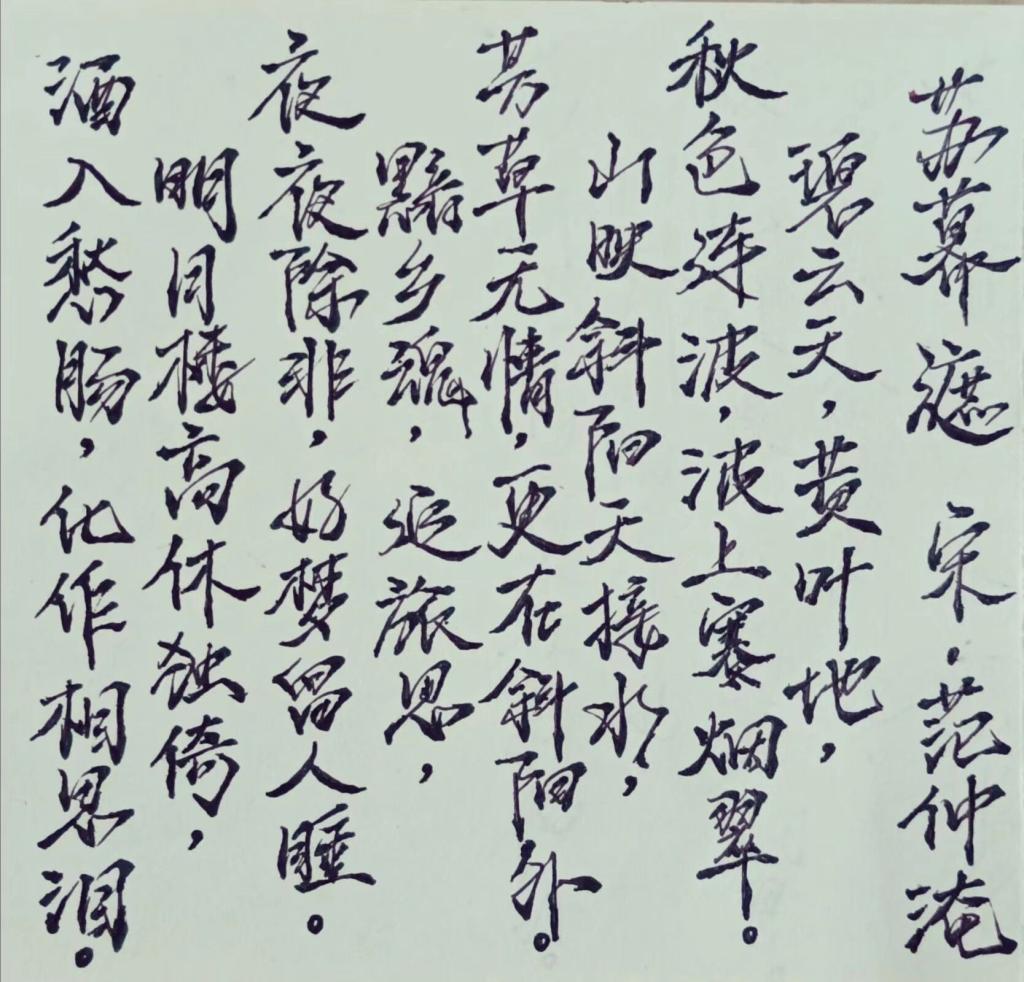 苏幕遮 宋·范仲淹
碧云天，黄叶地，
秋色连波，波上寒烟翠。
山映斜阳天接水，
芳草无情，更在斜阳外。
黯乡魂，追旅思，
夜夜除非，好梦留人睡。
明月楼高休独倚，
酒入愁肠，化作相思泪。